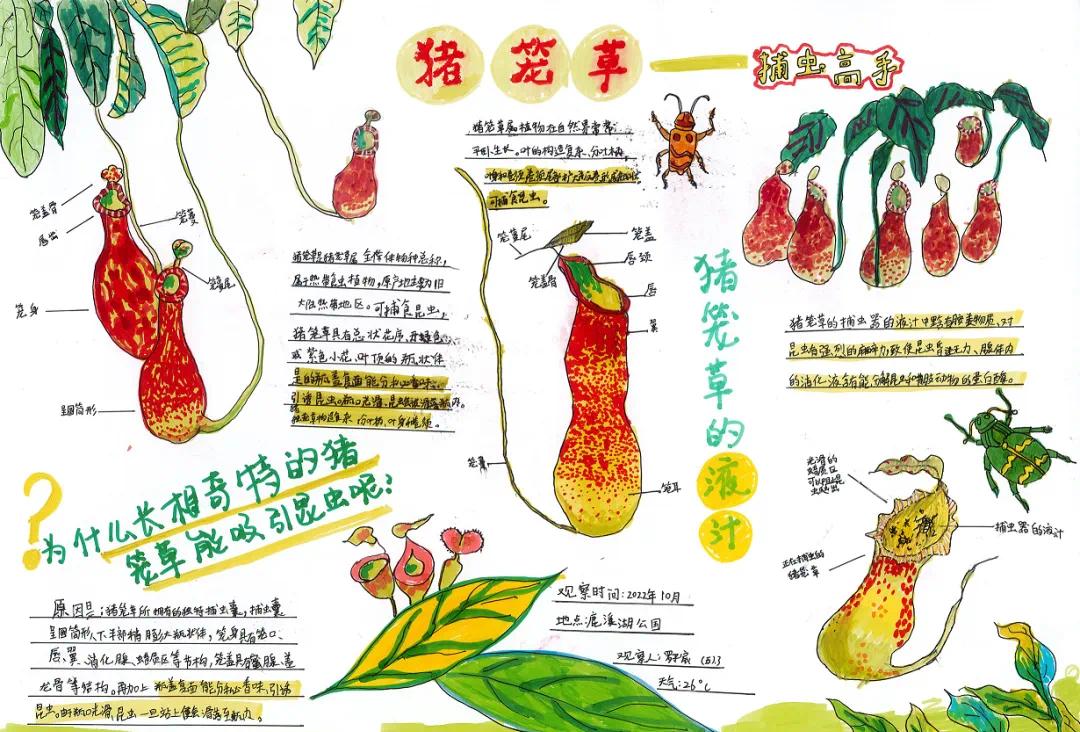 猪笼草——捕虫高手
猪笼草属植物在自然界常常
平卧生长。叶的构造复杂，分叶柄，
可捕食昆虫。
猪笼草是猪笼草属全体物种总称，
属于热带食虫植物，原产地主要为旧
大陆热带地区。可捕食昆虫。
猪笼草具有总状花序，开绿色
或紫色小花，叶顶的瓶状体
引诱昆虫。瓶口光滑，
笼盖骨
唇齿
笼身
呈圆筒形
笼蔓
笼蔓尾
笼蔓尾
笼盖骨
笼盖
唇颈
唇
翼
笼蔓
笼耳
猪笼草的液汁
猪笼草的捕虫器的液汁中
昆虫有强烈的麻痹力，致使昆虫
的消化液含有能分解
光滑的
蜡质区
可以阻止昆
虫爬出
捕虫器的液汁
正在捕虫的
猪笼草
?为什么长相奇特的猪
笼草能吸引昆虫呢?
原因是：猪笼草所拥有的独特捕虫囊，捕虫囊
呈圆筒形，下半部稍膨大瓶状体，笼身具有笼口、
唇、翼、消化腺、蜡质区等节构，笼盖具有蜜腺、盖
龙骨等结构。再加上瓶盖复面能分秘香味，引诱
昆虫。由于瓶口光滑，昆虫一旦站上便会滑落至瓶内。
观察时间：2022年10月
地点：鹿溪湖公园
观察人：
天气：26°C